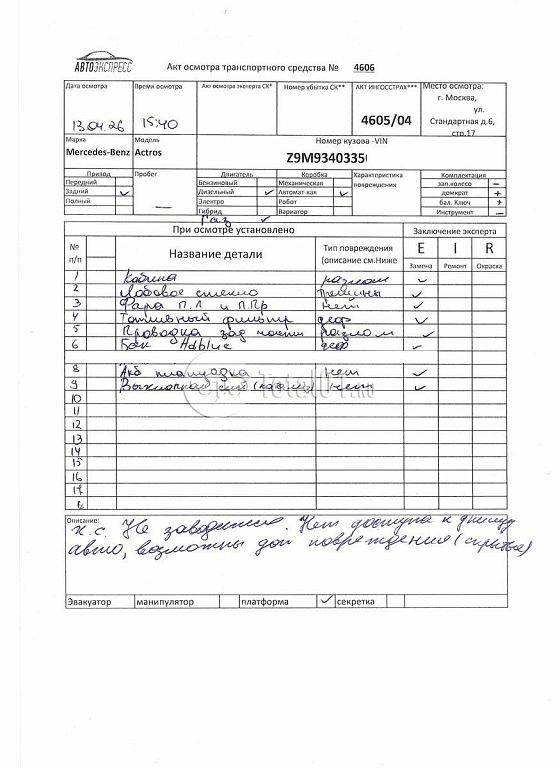 АВТОЭКСПРЕСС
Акт осмотра транспортного средства № 4606
Дата осмотра Время осмотра Акт осмотра эксперта СК* Номер убытка СК** АКТ ИНГОССТРАХ*** Место осмотра:
13.04.26 15:40 4605/04 г. Москва, ул. Стандартная д.6, стр.17
Марка Модель Номер кузова -VIN
Mercedes-Benz Actros Z9M9340335
Привод Пробег Двигатель Коробка Характеристика повреждений Комплектация
Передний Бензиновый Механическая зап.колесо –
Задний ✓ Дизельный ✓ Автомат-кая ✓ домкрат +
Полный — Электро Робот бал. Ключ +
Гибрид Вариатор Инструмент –
Газ ✓
При осмотре установлено Заключение эксперта
№ п/п Название детали Тип повреждения (описание см.Ниже E I R
Замена Ремонт Окраска
1 Кабина разлом ✓
2 Лобовое стекло трещины ✓
3 Фара П.Л и П.Пр нет ✓
4 Топливный фильтр деф ✓
5 Проводка зад части разлом ✓
6 Бак Adblue деф ✓
8 Акб площадка нет ✓
9 Выхлопная нет ✓
10
11
12
13
14
15
16
17
Описание:
Не заводится. Нет доступа к днищу
авто, возможны доп повреждения (скрытые)
Эвакуатор манипулятор платформа ✓ секретка